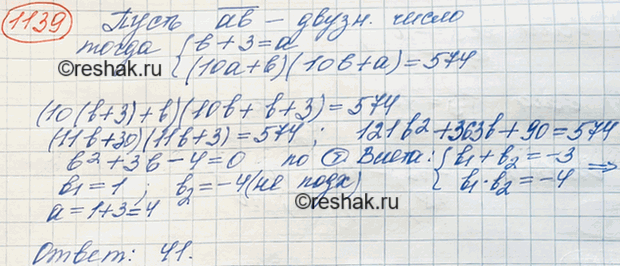 1139 Пусть ab – двузн. число
тогда { b + 3 = a
{ (10a+b)(10b+a) = 574
©reshak.ru
(10(b+3)+b)(10b+b+3) = 574
(11b+30)(11b+3) = 574 ; 121b² + 363b + 90 = 574
b² + 3b – 4 = 0 по Т Виета: { b₁ + b₂ = –3
b₁ = 1 ; b₂ = –4 (не подх) { b₁ · b₂ = –4 ⇒
a = 1+3 = 4
©reshak.ru
Ответ: 41.